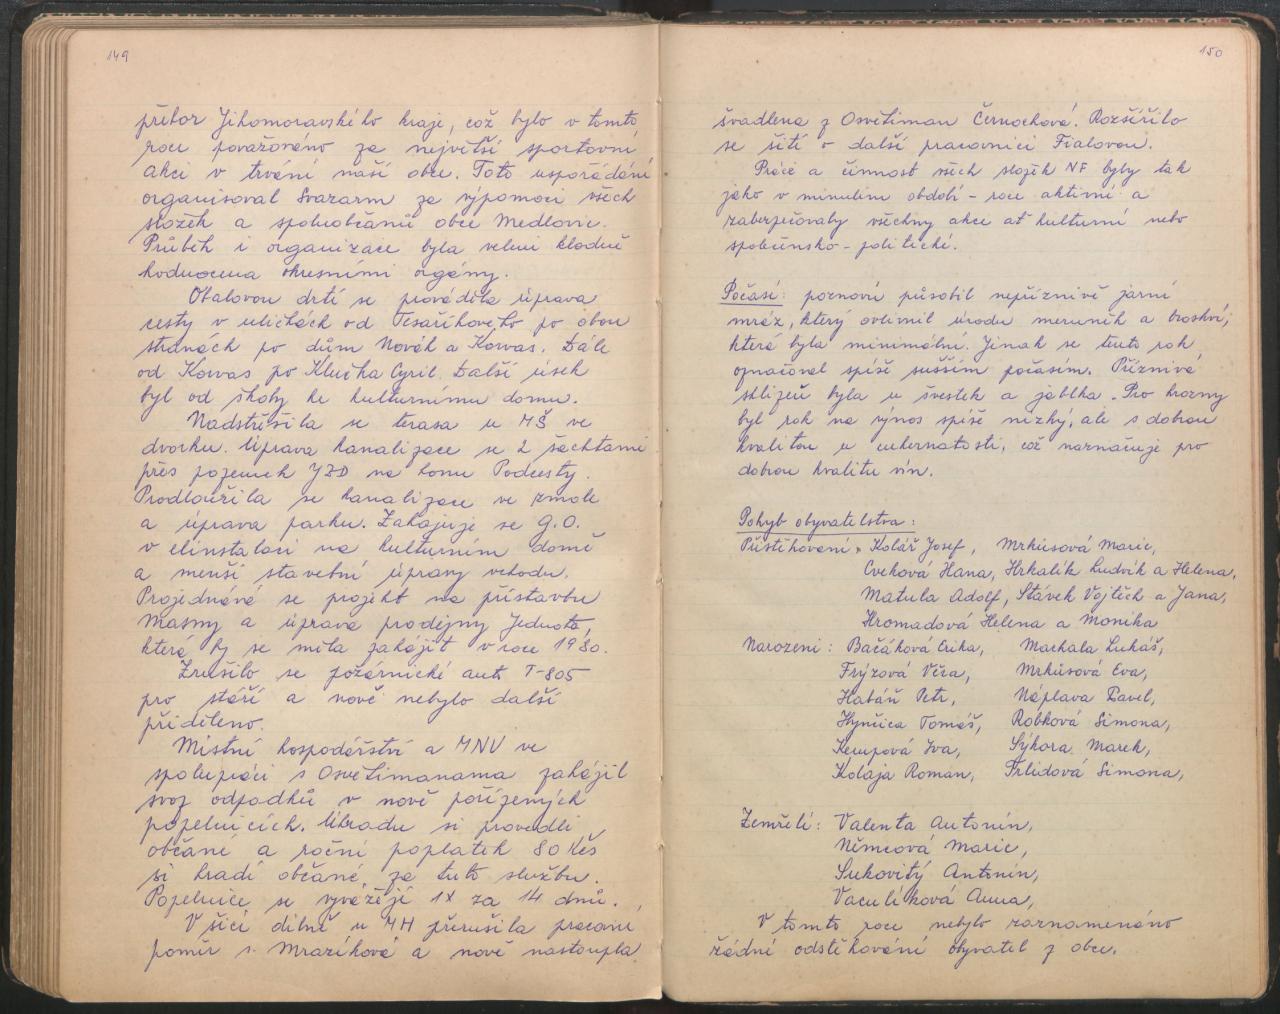 149
přebor Jihomoravského kraje, což bylo v tomto
roce považováno za největší sportovní
akci v trvání naší obce. Toto uspořádání
organisoval Svazarm za výpomoci všech
složek a spoluobčanů obce Medlovic.
Průběh i organizace byla velmi kladně
hodnocena okresními orgány.
Obalovou drtí se prováděla úprava
cesty v uličkách od Tesaříkového po obou
stranách po dům Novák a Korvas. Dále
od Korvas po Klučka Cyril. Další úsek
byl od školy ke kulturnímu domu.
Nadstřešila se terasa u MŠ ve
dvorku. Úprava kanalizace se 2 šachtami
přes pozemek JZD na konci Podcesty.
Prodloužila se kanalizace ve zmole
a úprava parku. Zahajuje se G.O.
v elinstalaci na kulturním domě
a menší stavební úpravy vchodu.
Projednává se projekt na přístavbu
Masny a úprava prodejny Jednota,
která by se měla zahájit v roce 1980.
Zrušilo se požárnické auto T-805
pro stáří a nově nebylo další
přiděleno.
Místní hospodářství a MNV ve
spolupráci s Osvětimanama zahájil
svoz odpadků v nově pořízených
popelnicích. Úhradu si provedli
občané a roční poplatek 80 Kčs
si hradí občané za tuto službu.
Popelnice se vyvážejí 1x za 14 dnů.
V šicí dílně u MH přerušila pracovní
poměr s. Mrazíková a nově nastoupla
150
švadlena z Osvětiman Černochová. Rozšířilo
se šití o další pracovnici Fialovou.
Práce a činnost všech složek NF byly tak
jako v minulém období - roce aktivní a
zabezpečovaly všechny akce ať kulturní nebo
společensko - politické.
Počasí: poznovu působil nepříznivě jarní
mráz, který ovlivnil úrodu meruněk a broskví,
která byla minimální. Jinak se tento rok
označoval spíše sušším počasím. Příznivá
sklizeň byla u švestek a jablka. Pro hrozny
byl rok na výnos spíše nízký, ale s dobrou
kvalitou u cukernatosti, což naznačuje pro
dobrou kvalitu vín.
Pohyb obyvatelstva:
Přistěhovaní: Kolář Josef, Mrkúsová Marie,
Cveková Hana, Hrkalík Ludvík a Helena,
Matula Adolf, Stávek Vojtěch a Jana,
Hromadová Helena a Monika
Narozeni: Bačáková Erika, Machala Lukáš,
Frýzová Věra, Mrkúsová Eva,
Habáň Petr, Náplava Pavel,
Hynčica Tomáš, Robková Simona,
Kempová Iva, Sýkora Marek,
Kolaja Roman, Šrlidová Simona,
Zemřelí: Valenta Antonín,
Němcová Marie,
Sukovitý Antonín,
Vaculíková Anna,
V tomto roce nebylo zaznamenáno
žádné odstěhování obyvatel z obce.